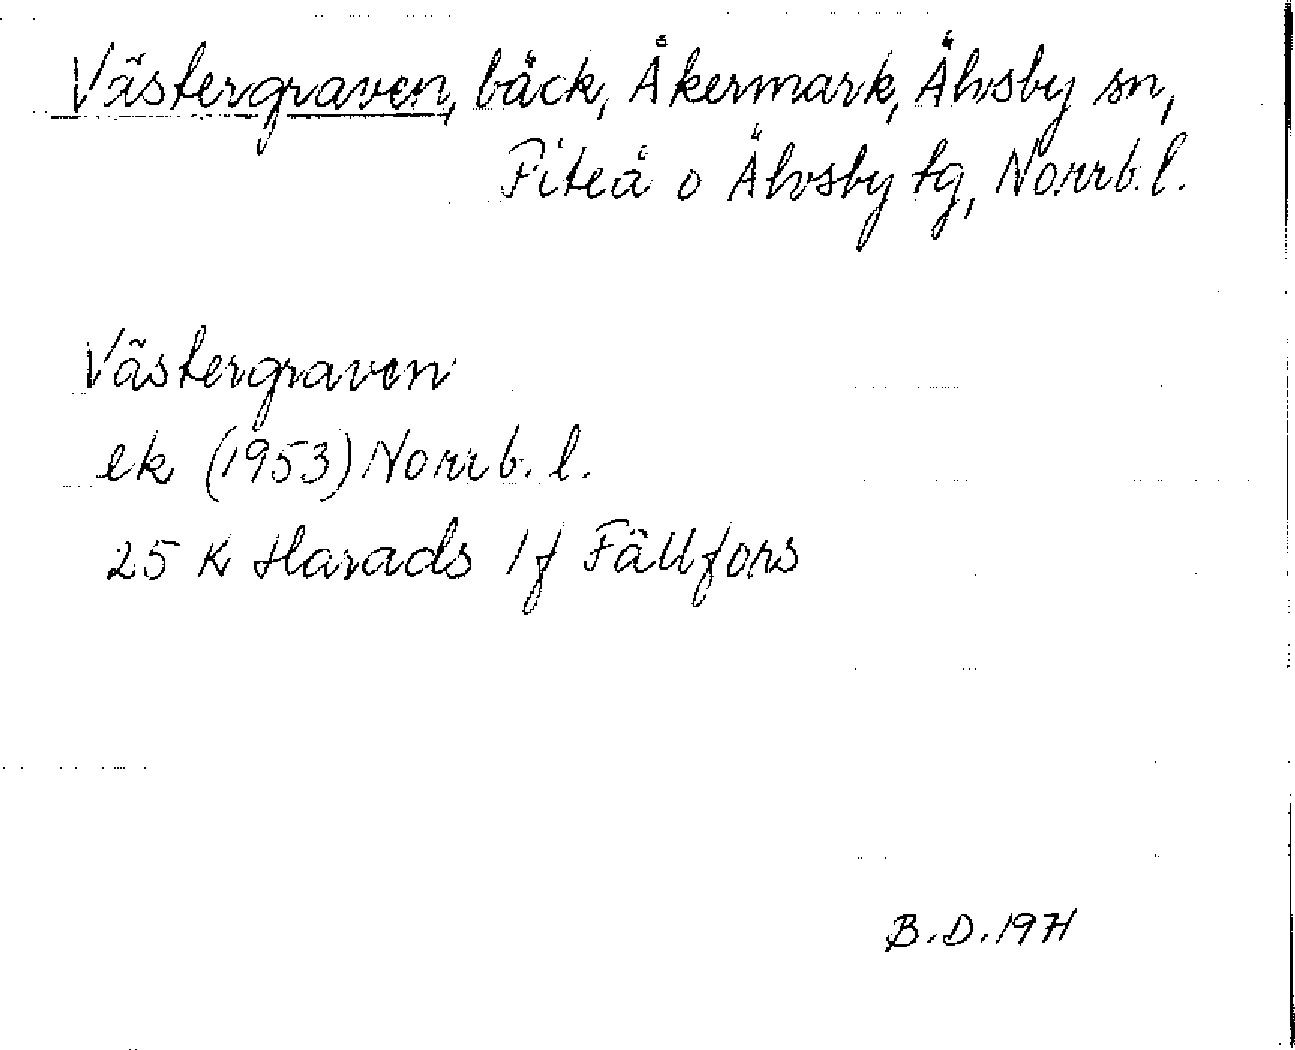 Västergraven, bäck, Åkermark, Älvsby sn,
Piteå o Älvsby tg, Norrb. l.
Västergraven
ek (1953) Norrb. l.
25 K Harads 1f Fällfors
B.D. 1971